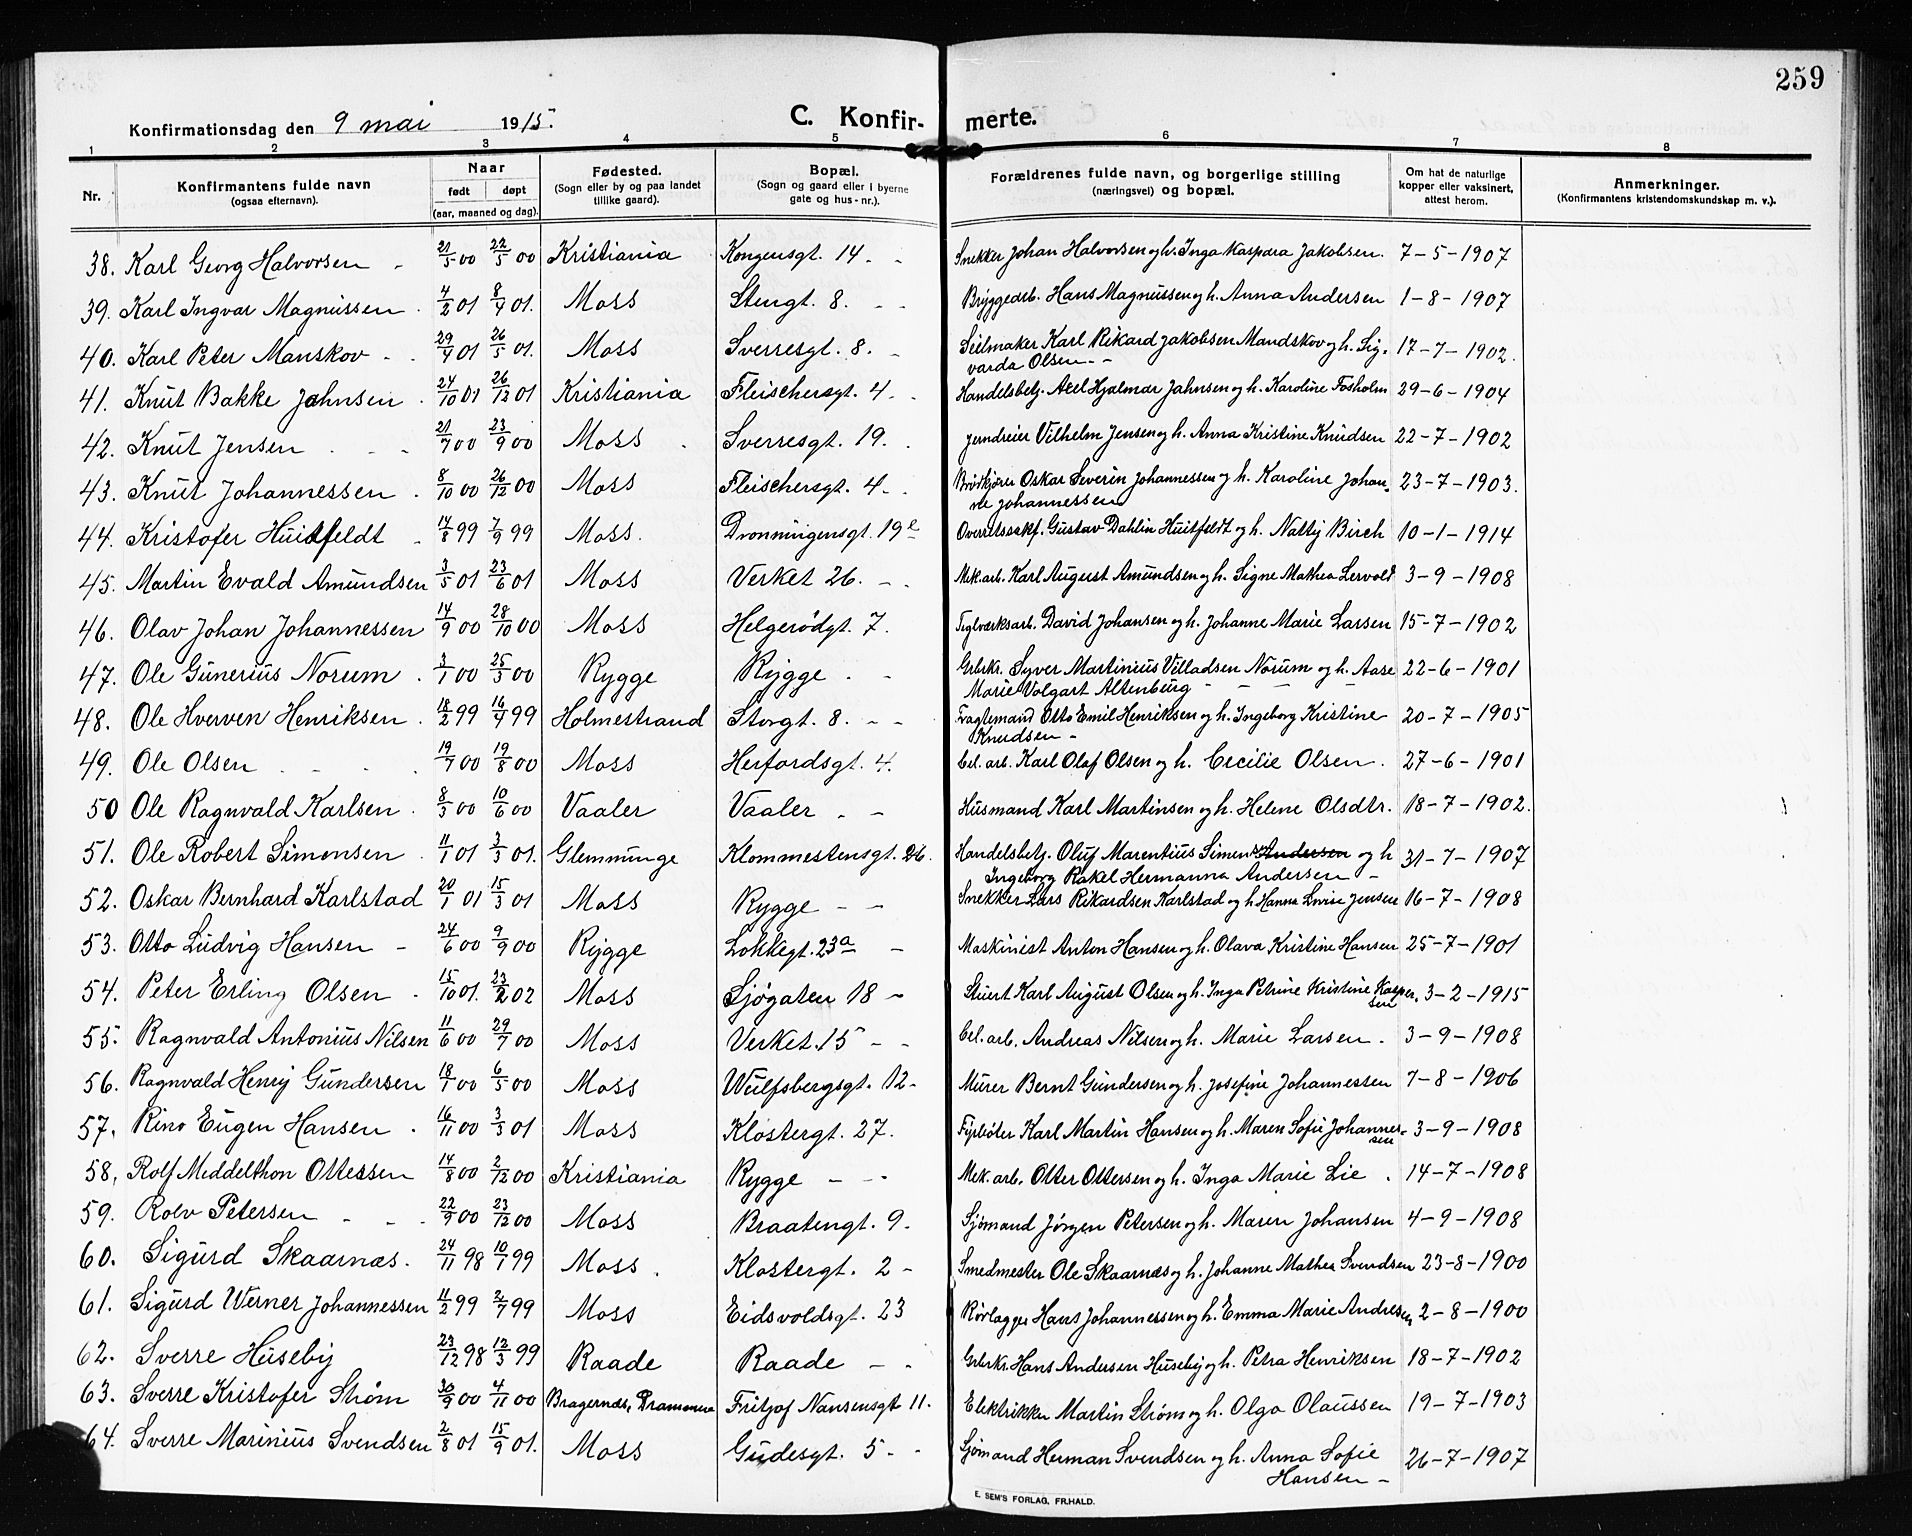 259
Konfirmationsdag den 9 mai 1915.
C. Konfirmerte.
1 2 3 4 5 6 7 8
Nr. Konfirmantens fulde navn (ogsaa efternavn). Naar født døpt (aar, maaned og dag). Fødested. (Sogn eller by og paa landet tillike gaard). Bopæl. (Sogn og gaard eller i byerne gate og hus-nr.). Forældrenes fulde navn, og borgerlige stilling (næringsvei) og bopæl. Om hat de naturlige kopper eller vaksinert, attest herom. Anmerkninger. (Konfirmantens kristendomskundskap m. v.).
38. Karl Georg Halvorsen - 21/5 00 22/5 00 Kristiania Kongensgt. 14 - - Snekker Johan Halvorsen og h. Inga Kaspara Jakobsen. 7-5-1907
39. Karl Ingvar Magnussen. 4/2 01 8/4 01. Moss Stengt. 8. - - Bryggearb. Hans Magnussen og h. Anna Andersen 1-8-1907
40. Karl Peter Manskov - - 29/4 01 26/5 01. Moss Sverresgt. 8. - Seilmaker Karl Rikard Jakobsen Mandskov og h. Sigvarda Olsen - - 17-7-1902.
41. Knut Bakke Jahnsen. 24/10 01 26/12 01 Kristiania Fleischersgt. 4. - Handelsbetj. Axel Hjalmar Jahnsen og h. Karoline Fosholm 29-6-1904
42. Knut Jensen . - - 21/7 00 23/9 00 Moss . Sverresgt. 19. . Jerndreier Vilhelm Jensen og h. Anna Kristine Knudsen 22-7-1902
43. Knut Johannessen . 8/10 00 26/12 00 Moss Fleischersgt. 4. - Brødkjører Oskar Severin Johannessen og h. Karoline Johanne Johannessen 23-7-1903.
44. Kristofer Huitfeldt - 14/8 99 7/9 99 Moss. Dronningensgt. 19 Overretssakf. Gustav Dahlin Huitfeldt og h. Natty Birch 10-1-1914
45. Martin Evald Amundsen 3/5 01 23/6 01 Moss Verket 26. - - Mek. arb. Karl August Amundsen og h. Signe Mathea Lervold 3-9-1908
46. Olav Johan Johannessen 14/9 00 28/10 00 Moss Helgerødgt. 7. Teglværksarb. David Johansen og h. Johanne Marie Larsen 15-7-1902
47. Ole Gunerius Norum . 3/1 00 25/3 00 Rygge Rygge . - Grbrkr. Syver Martinius Villadsen Norum og h. Aase Marie Volgart Altenburg - - - - 22-6-1901
48. Ole Hverven Henriksen . 18/2 99 16/4 99 Holmestrand Storgt. 8. - - Fragtemand Otto Emil Henriksen og h. Ingeborg Kristine Knudsen - 20-7-1905
49. Ole Olsen . - . . 19/7 00 19/8 00 Moss Herfordsgt. 4. Cel. arb. Karl Olaf Olsen og h. Cecilie Olsen . 27-6-1901
50 Ole Ragnvald Karlsen . 8/3 00 10/6 00 Vaaler Vaaler . - Husmand Karl Martinsen og h. Helene Olsdtr. 18-7-1902.
51. Ole Robert Simonsen . 11/1 01 3/3 01. Glemminge Klommestensgt. 26. Handelsbetj. Oluf Marentius Simens Andersen og h Ingeborg Rakel Hermanna Andersen - 31-7-1907
52. Oskar Bernhard Karlstad 20/1 01 15/3 01 Moss Rygge - - Snekker Lars Rikardsen Karlstad og h. Hanna Lovise Jensen 16-7-1908
53. Otto Ludvig Hansen - 24/6 00 9/9 00 Rygge Lokkegt. 23a - Maskinist Anton Hansen og h. Olava Kristine Hansen 25-7-1901
54. Peter Erling Olsen . 15/10 01. 23/2 02 Moss Sjøgaten 18 - Stuert Karl August Olsen og h. Inga Petrine Kristine Kaspersen 3-2-1915
55. Ragnvald Antonius Nilsen 11/6 00 29/7 00 Moss Verket. 15 - - Cel. arb. Andreas Nilsen og h. Marie Larsen . 3-9-1908
56. Ragnvald Henry Gundersen 18/1 00 6/5 00 Moss Wulfsbergsgt. 12- Murer Bernt Gundersen og h. Josefine Johannessen 7-8-1906
57. Rino Eugen Hansen . 16/11 00 3/3 01 Moss Klostergt. 27. Fyrbøter Karl Martin Hansen og h. Maren Sofie Johannessen 3-9-1908
58. Rolf Meddelthon Ottessen 14/8 00 2/12 00 Kristiania Rygge - - - Mek. arb. Otter Ottersen og h. Inga Marie Lie . 14-7-1908
59. Rolv Petersen - - . 22/9 00 23/12 00 Moss Braatengt. 9. Sjømand Jørgen Petersen og h. Maren Johansen 4-9-1908
60. Sigurd Skaarnæs. 24/11 98 10/1 99 Moss . Klostergt. 2 - Smedmester Ole Skaarnæs og h. Johanne Mathea Svendsen 23-8-1900
61. Sigurd Werner Johannessen 11/2 99 2/7 99 Moss Eidsvoldsgt. 23 Rørlægger Hans Johannessen og h. Emma Marie Andresen 2-8-1900
62. Sverre Huseby 23/12 98 12/3 99 Raade Raade - - Grbrkr. Hans Andersen Huseby og h. Petra Henriksen 18-7-1902
63. Sverre Kristofer Strøm 30/9 00 4/11 00 Bragernæs, Drammen Fritjof Nansensgt 11. Elektrikker Martin Strøm og h. Olga Olaussen 19-7-1903
64. Sverre Marinius Svendsen 2/8 01 15/9 01. Moss Gudesgt. 5 - - Sjømand Herman Svendsen og h. Anna Sofie Hansen - 26-7-1907
E. SEM'S FORLAG, FR.HALD.